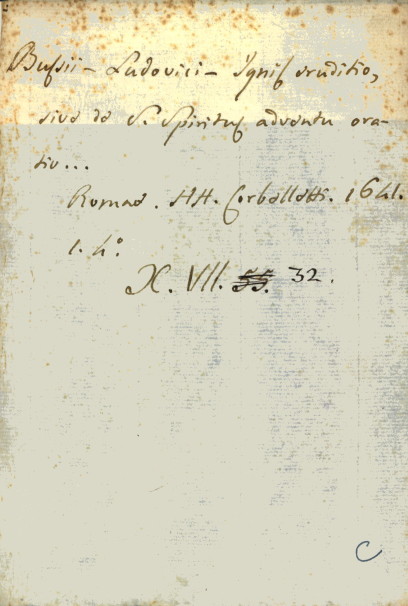 Bussii - Ludovici - Ignis eruditio,
sive de S. Spiritus adventu ora-
tio...
Romae. HH. Corbelletti. 1641.
1. 4°.
X. VII. 55. 32.
C